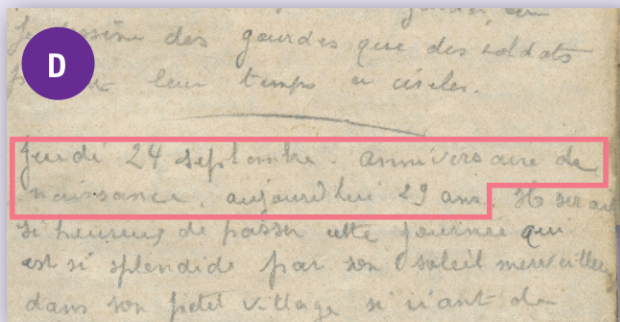 D
dessine des gourdes que des soldats
leur temps a ciseler.
Jeudi 24 septembre. anniversaire de
naissance. aujourd'hui 29 ans.
si heureux de passer cette journée qui
est si splendide par son soleil merveilleux
dans son petit village si riant de